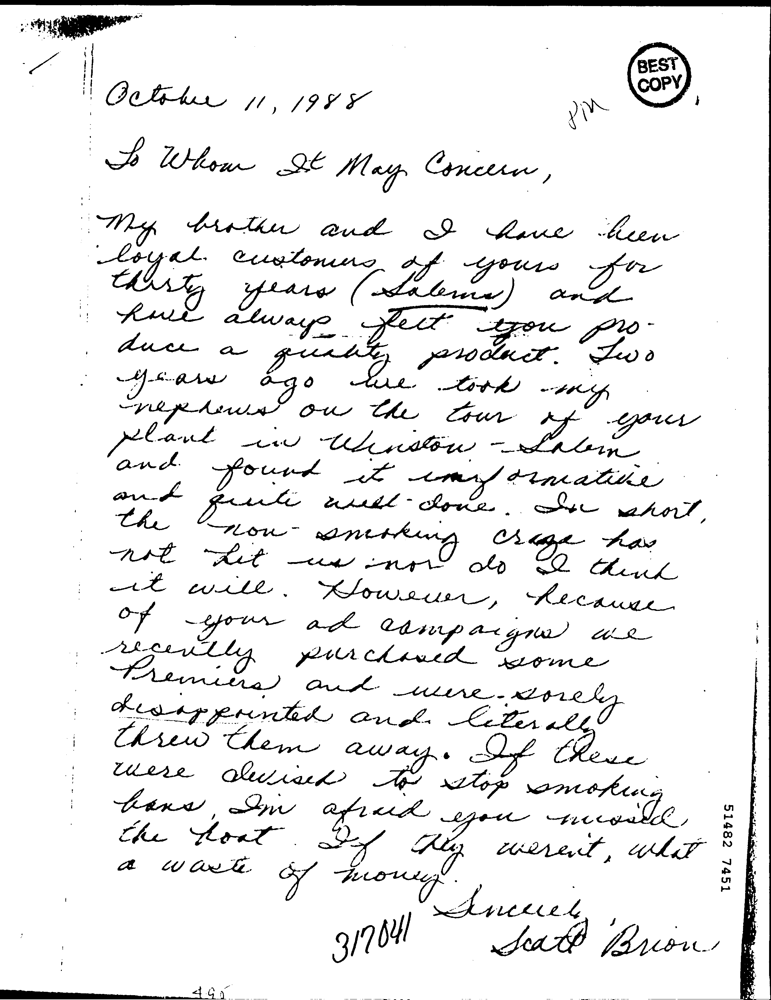 BEST
COPY
October 11, 1988
PM
To Whom It May Concern,
My brother and I have been
loyal customers of yours for
thirty years (Salems) and
have always felt you pro-
duce a quality product. Two
years ago we took my
nephews on the tour of your
plant in Winston-Salem
and found it informative
and quite well-done. In short,
the non-smoking craze has
not hit us nor do I think
it will. However, because
of your ad campaigns we
recently purchased some
Premiers and were sorely
disappointed and literally
threw them away. If these
were devised to stop smoking
bans, I'm afraid you missed
the boat. If they weren't, what
a waste of money.
Sincerely,
Scott Brion
317041
51482 7451